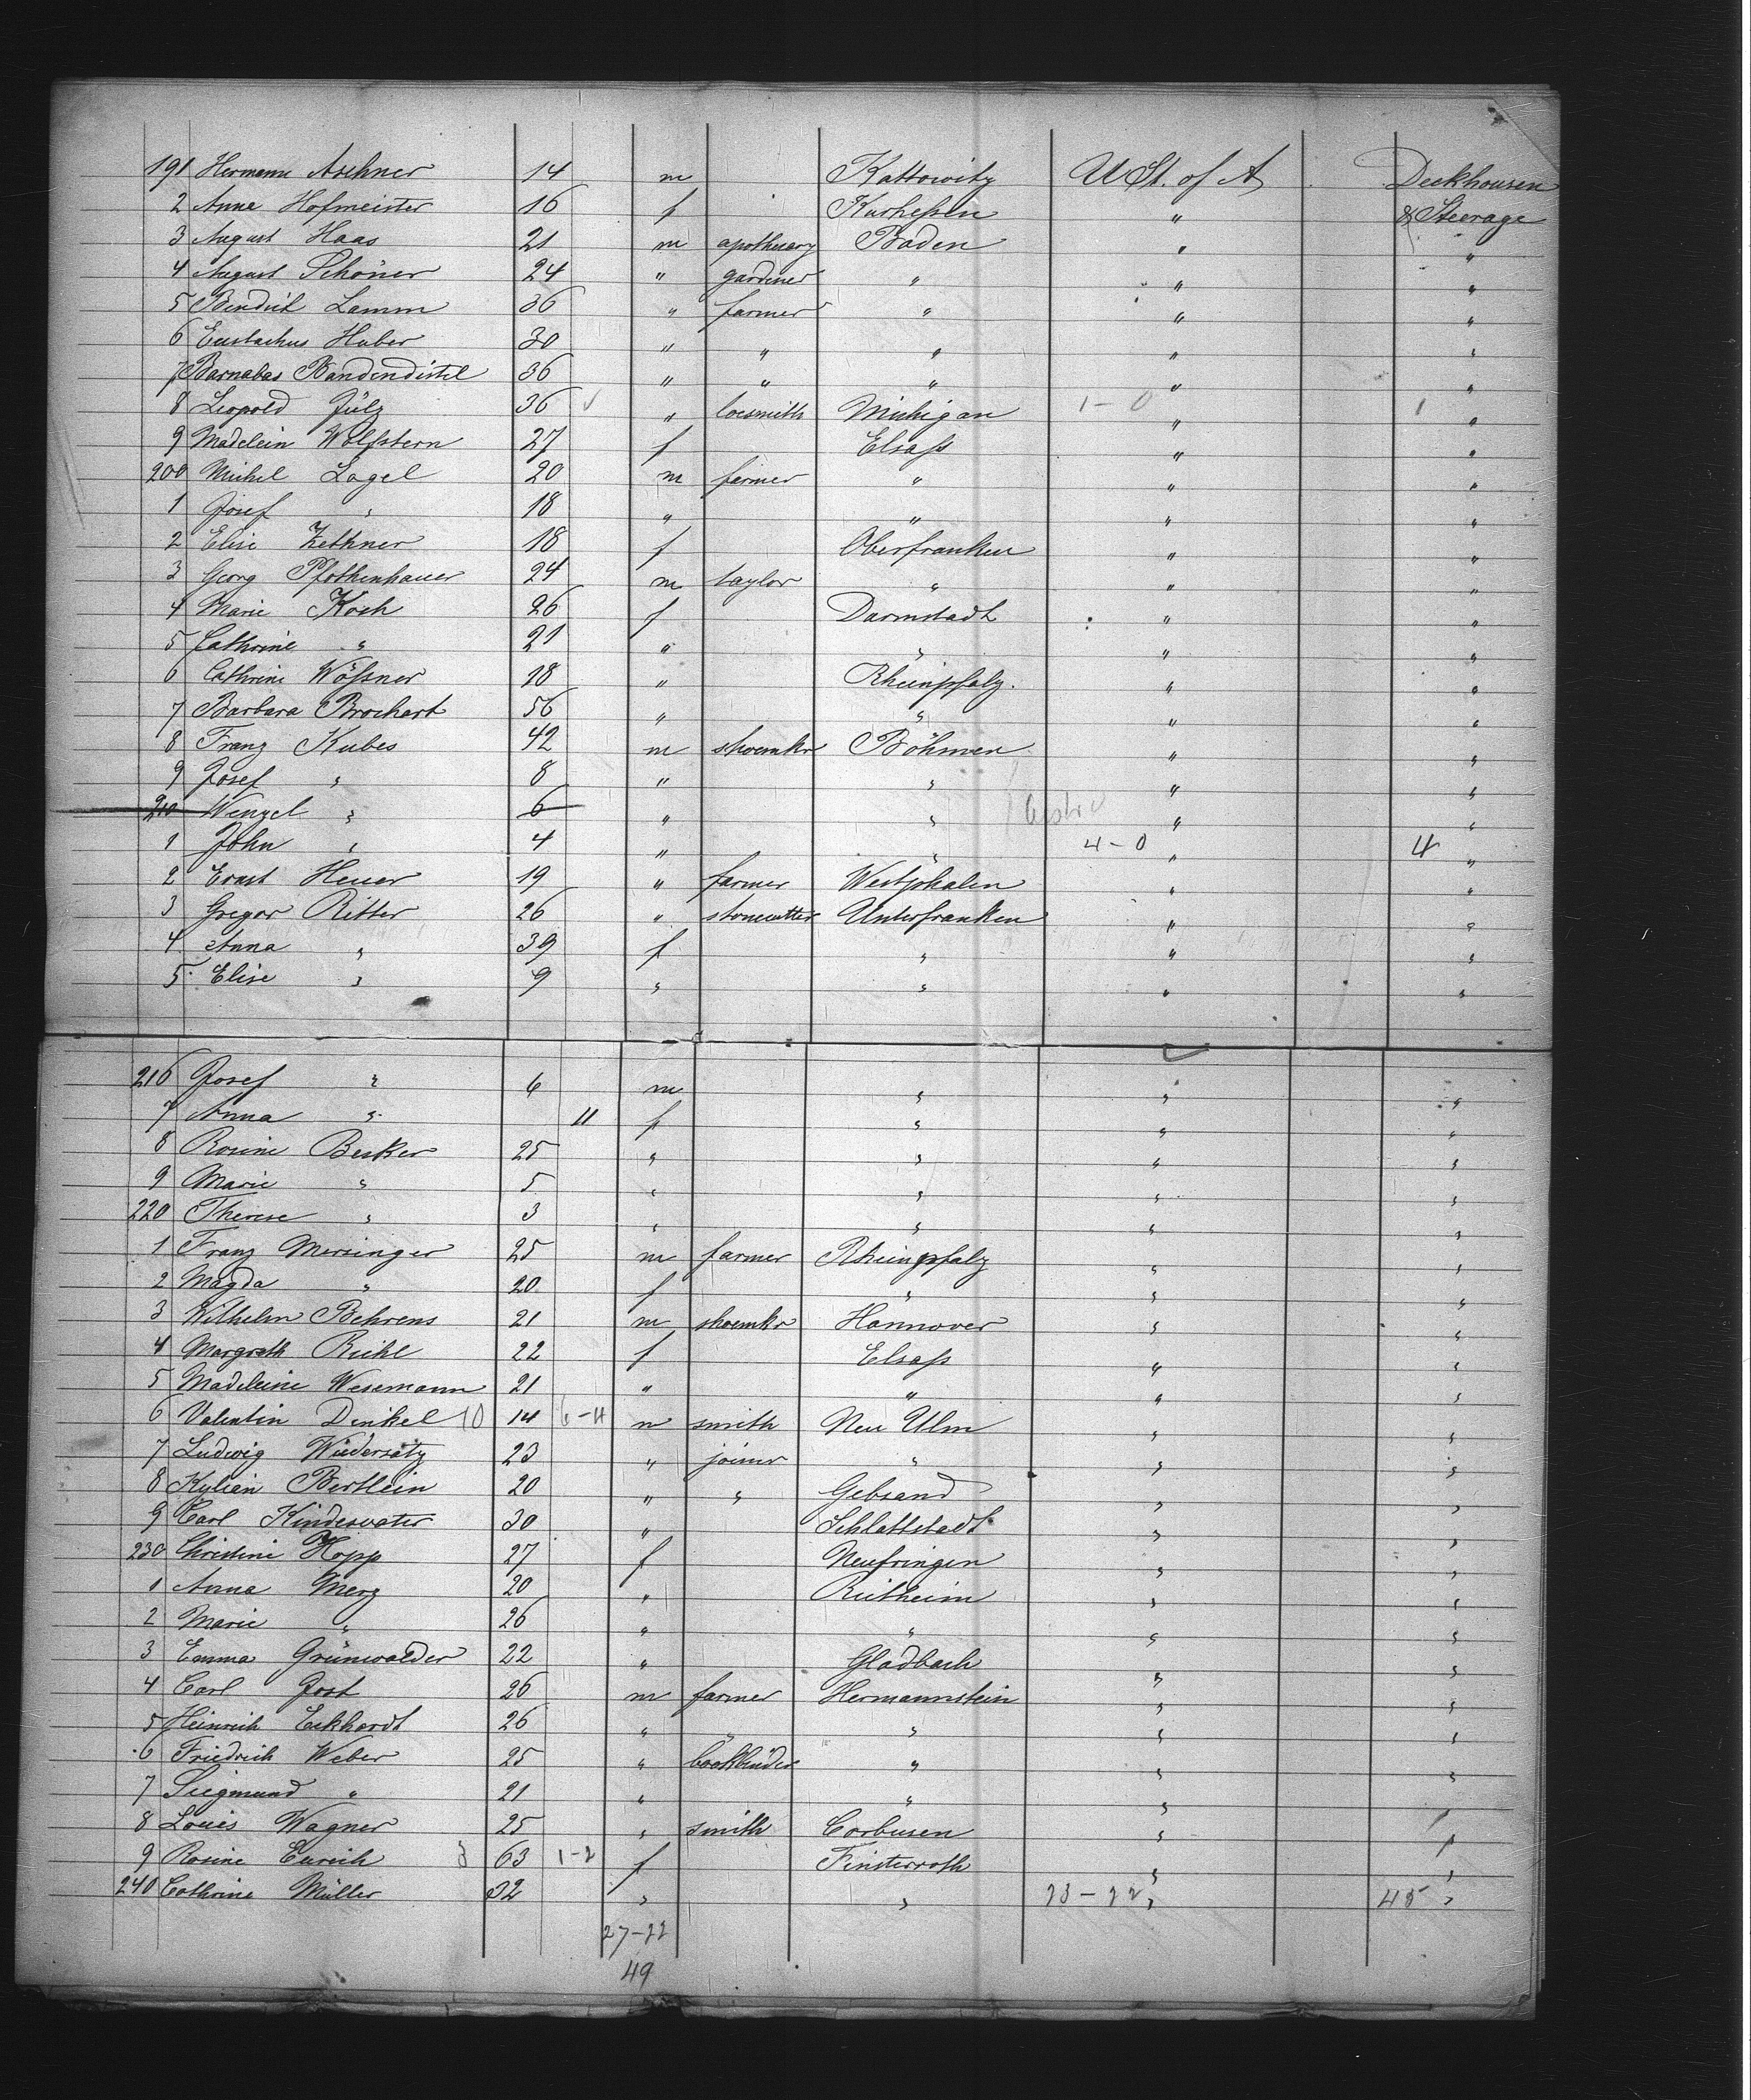 191 Hermann Aschner 14 m Kattowitz U St. of A Deckhousen
2 Anna Hofmeister 16 f Kurheßen " & Steerage
3 August Haas 21 m apothecary Baden " "
4 August Schöner 24 " gardener " " "
5 Bendict Lamm 36 " farmer " " "
6 Eustachus Huber 30 " " " " "
7 Barnabas Bandendistel 36 " " " " "
8 Leopold Jülz 36 " locsmith Michigan 1-0 " 1 "
9 Madelein Wolfstern 27 f Elsaß " "
200 Michel Lagel 20 m farmer " " "
1 Josef " 18 " " " "
2 Elise Zethner 18 f Oberfranken " "
3 Georg Pfothenhauer 24 m taylor " " "
4 Marie Koch 26 f Darmstadt " "
5 Cathrine " 21 " " " "
6 Cathrine Wößner 18 " Rheinpfalz. " "
7 Barbara Brochart 56 " " " "
8 Franz Kubes 42 m shoemkr Böhmen " "
9 Josef " 8 " " " "
210 Wenzel " 6 " " " "
1 John " 4 " " 4-0 " 4 "
2 Ernst Heuer 19 " farmer Westphalen " "
3 Gregor Ritter 26 " stonecutter Unterfranken " "
4 Anna " 39 f " " "
5 Elise " 9 " " " "
216 Josef " 6 m " " "
7 Anna " 11 f " " "
8 Rosine Becker 25 " " " "
9 Marie " 5 " " " "
220 Therese " 3 " " " "
1 Franz Mersinger 25 m farmer Rheinpfalz " "
2 Magda " 20 f " " "
3 Wilhelm Behrens 21 m shoemkr Hannover " "
4 Margreth Riehl 22 f Elsaß " "
5 Madeleine Wesemann 21 " " " "
6 Valentin Dinkel 10 14 6-4 m smith Neu Ulm " "
7 Ludwig Wiedersatz 23 " joiner " " "
8 Kylian Bertlein 20 " " Gebsand " "
9 Carl Kindervater 30 " Schlattstadt " "
230 Christine Hopp 27 f Neufringen " "
1 Anna Merz 20 " Rietheim " "
2 Marie " 26 " " " "
3 Emma Grünwalder 22 " Gladbach " "
4 Carl Jost 26 m farmer Hermannstein " "
5 Heinrich Eckhardt 26 " " " " "
6 Friedrich Weber 25 " bookbinder " " "
7 Siegmund " 21 " " " "
8 Louis Wagner 25 " smith Corbusen " "
9 Rosine Eureich 3 63 1-2 f Finsterroth " "
240 Cathrine Müller 32 " " 23-22 " 45 "
27-22
49